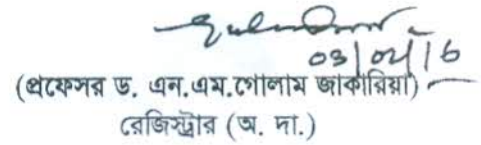 03/02/16
(প্রফেসর ড. এন.এম.গোলাম জাকারিয়া)
রেজিস্ট্রার (অ. দা.)